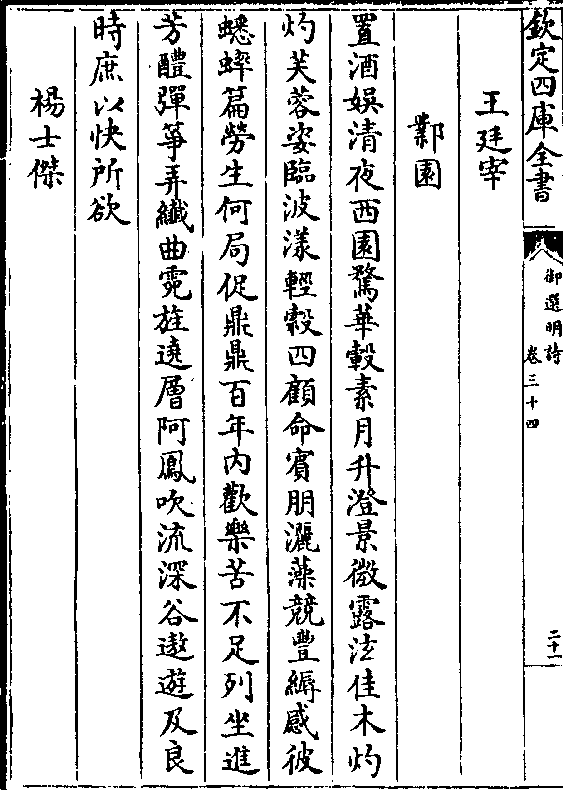 欽定四庫全書
御選明詩
卷三十四
二十一
王廷宰
鄴園
置酒娛清夜西園騖華轂素月升澄景微露泫佳木灼
灼芙蓉姿臨波漾輕縠四顧命賓朋灑藻競豐縟感彼
蟋蟀篇勞生何局促鼎鼎百年內歡樂苦不足列坐進
芳醴彈箏弄纖曲霓旌遶層阿鳳吹流深谷遨遊及良
時庶以快所欲
楊士傑